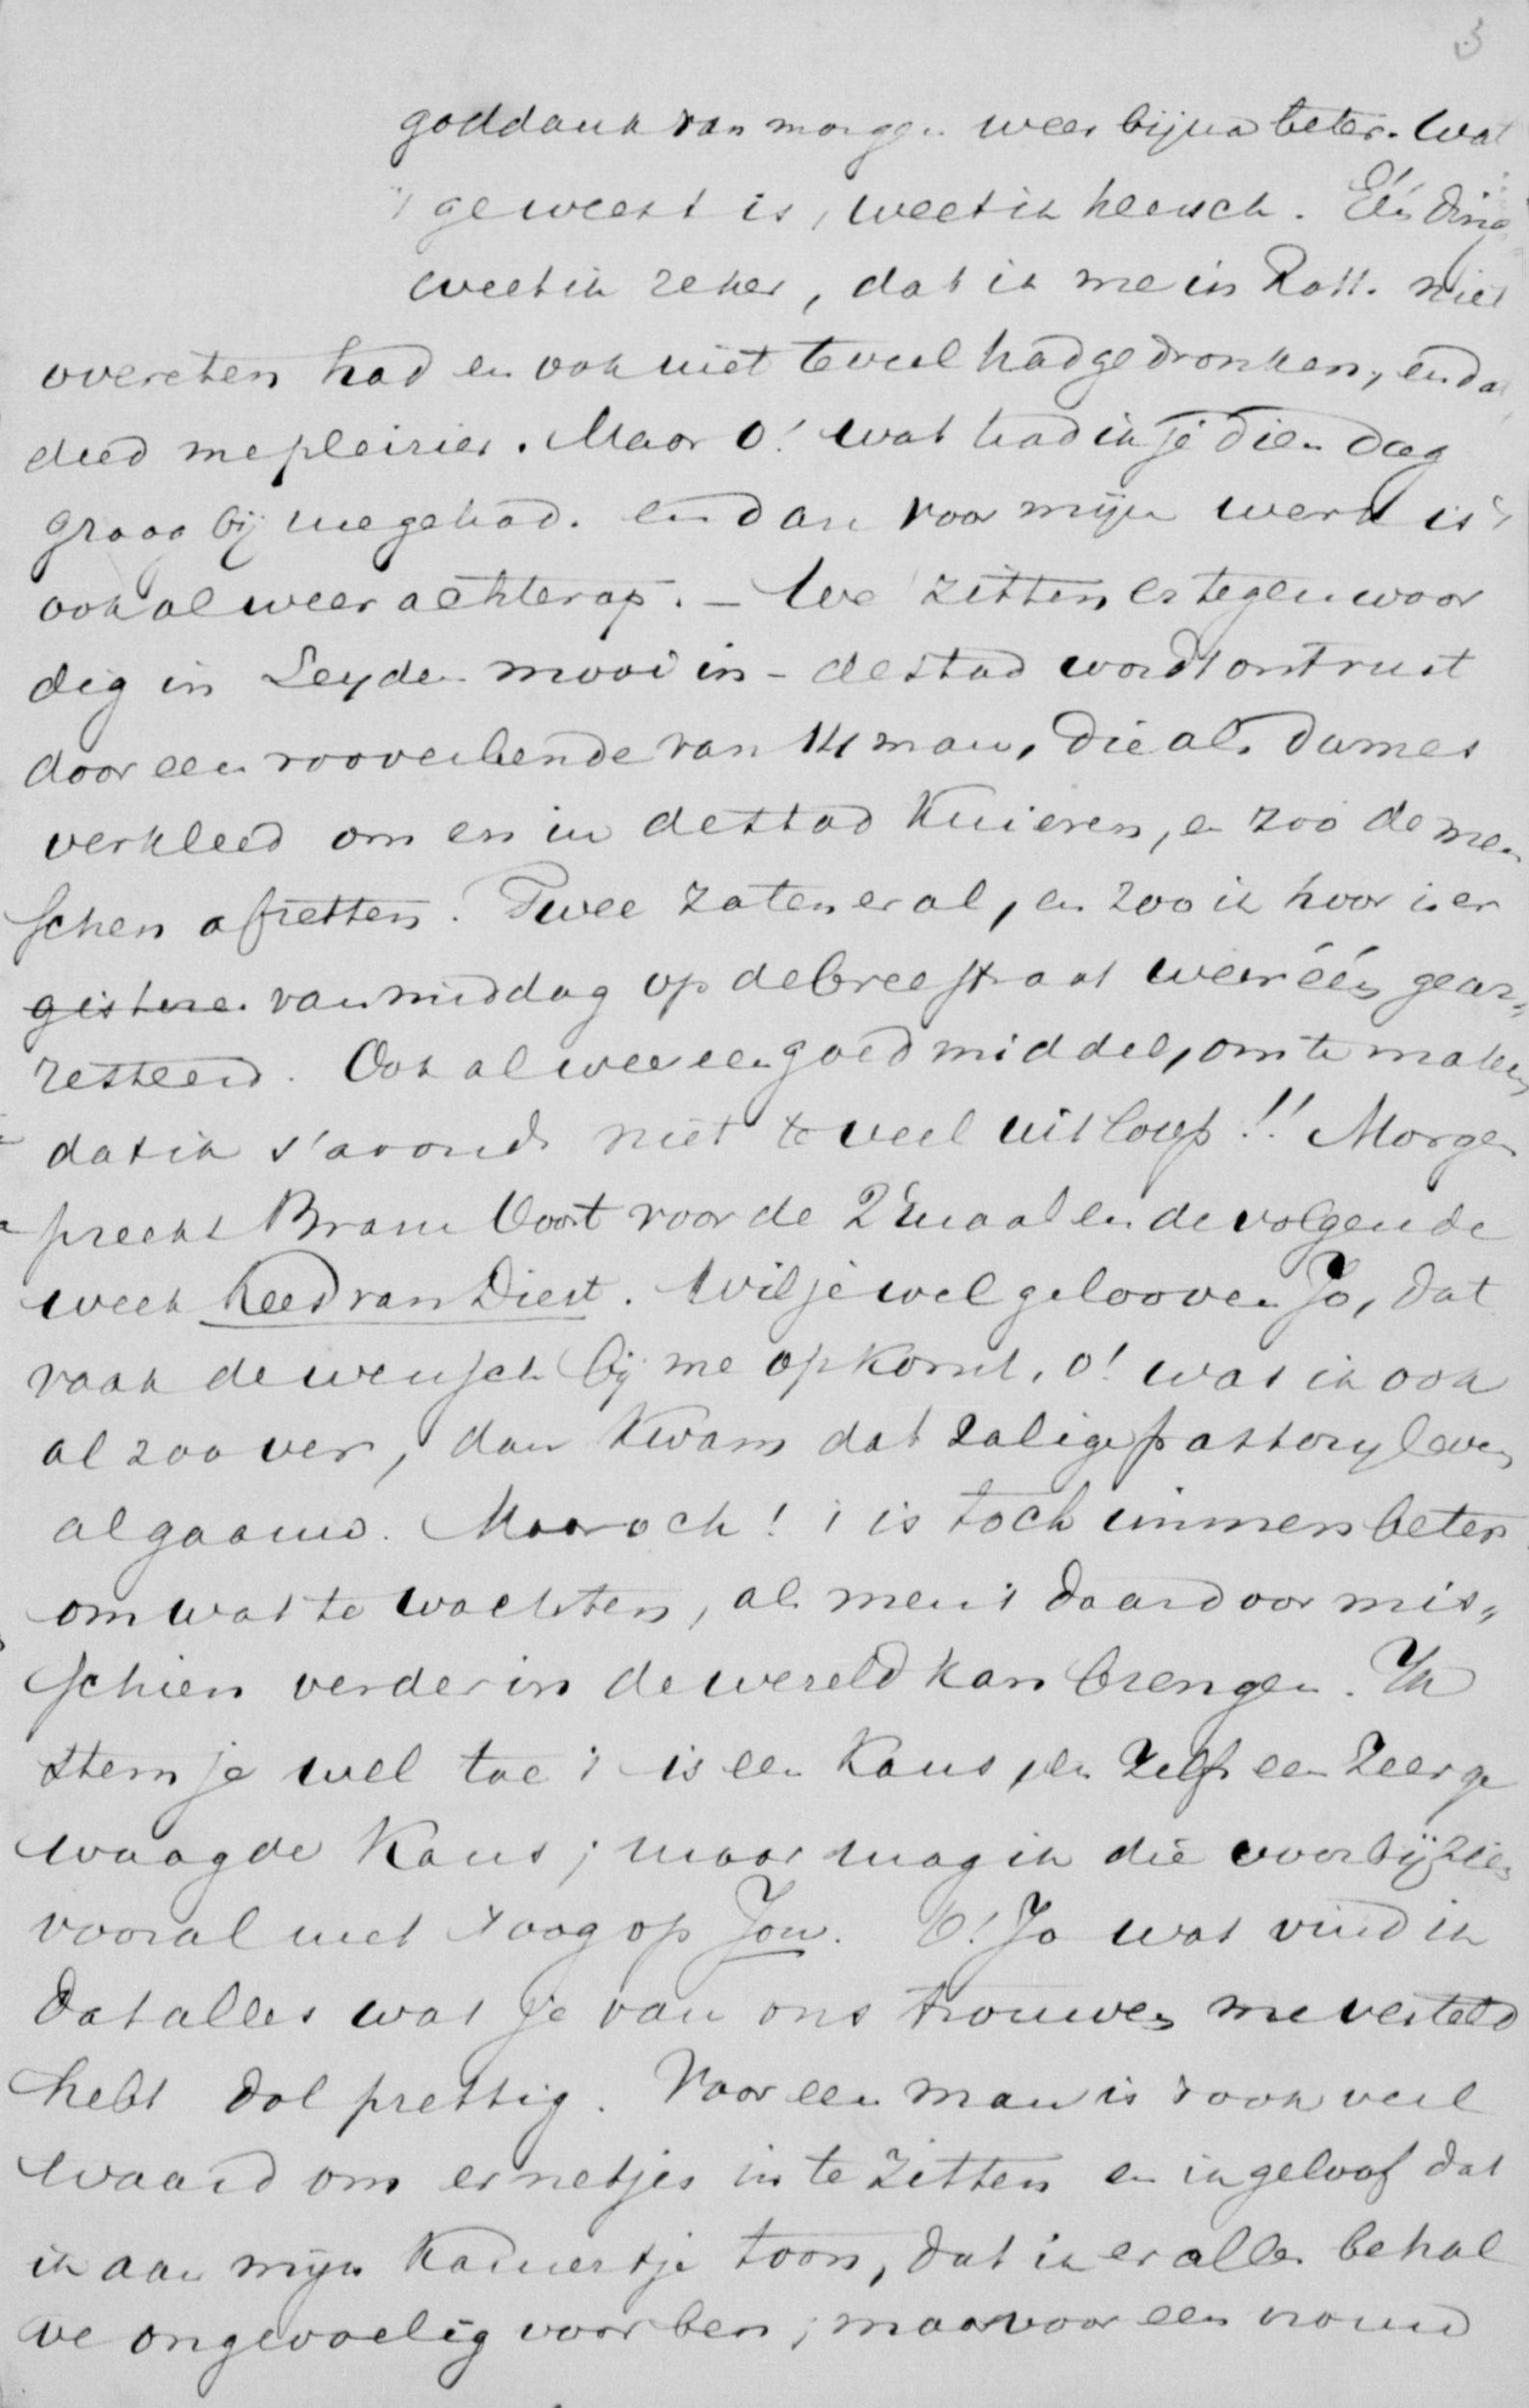 3
goddank van morgen weer bijna beter. Wat
't geweest is, weet ik heusch. Één ding
weet ik zeker, dat ik me in Rott. niet
overeten had en ook niet te veel had gedronken, en dat
deed me pleizier. Maar O! wat had ik je dien dag
graag bij me gehad. en dan voor mijn werk is 't
ook al weer achterop. – We zitten er tegenwoor
dig in Leyden mooi in – de stad wordt ontrust
door een rooverbende van 14 man, die als dames
verkleed om en in de stad kuieren, en zoo de men
schen afzetten. Twee zaten er al, en zoo ik hoor is er
gisteren van middag op de breestraat weer één gear„
resteerd. Ook al weer een goed middel, om te maken
dat ik s'avonds niet te veel uitloop!! Morgen
preekt Bram Voort voor de 2e maal en de volgende
week Kees van Diest. Wil je wel gelooven Jo, dat
vaak de wensch bij me opkomt, o! was ik ook
al zoo ver, dan kwam dat zalige pastoryleven
al gaauw. Maar och! 't is toch immers beter
om wat te wachten, als men 't daardoor mis„
schien verder in de wereld kan brengen. Ik
stem je wel toe 't is een kans, en zelfs een zeer ge
waagde kans; maar mag ik die voorbijzien
vooral met 't oog op Jou. O! Jo wat vind ik
dat alles wat je van ons trouwen me verteld
hebt dol prettig. Voor een man is 't ook veel
waard om er netjes in te zitten en ik geloof dat
ik aan mijn kamertje toon, dat ik er alles behal
ve ongevoelig voor ben; maar voor een vrouw